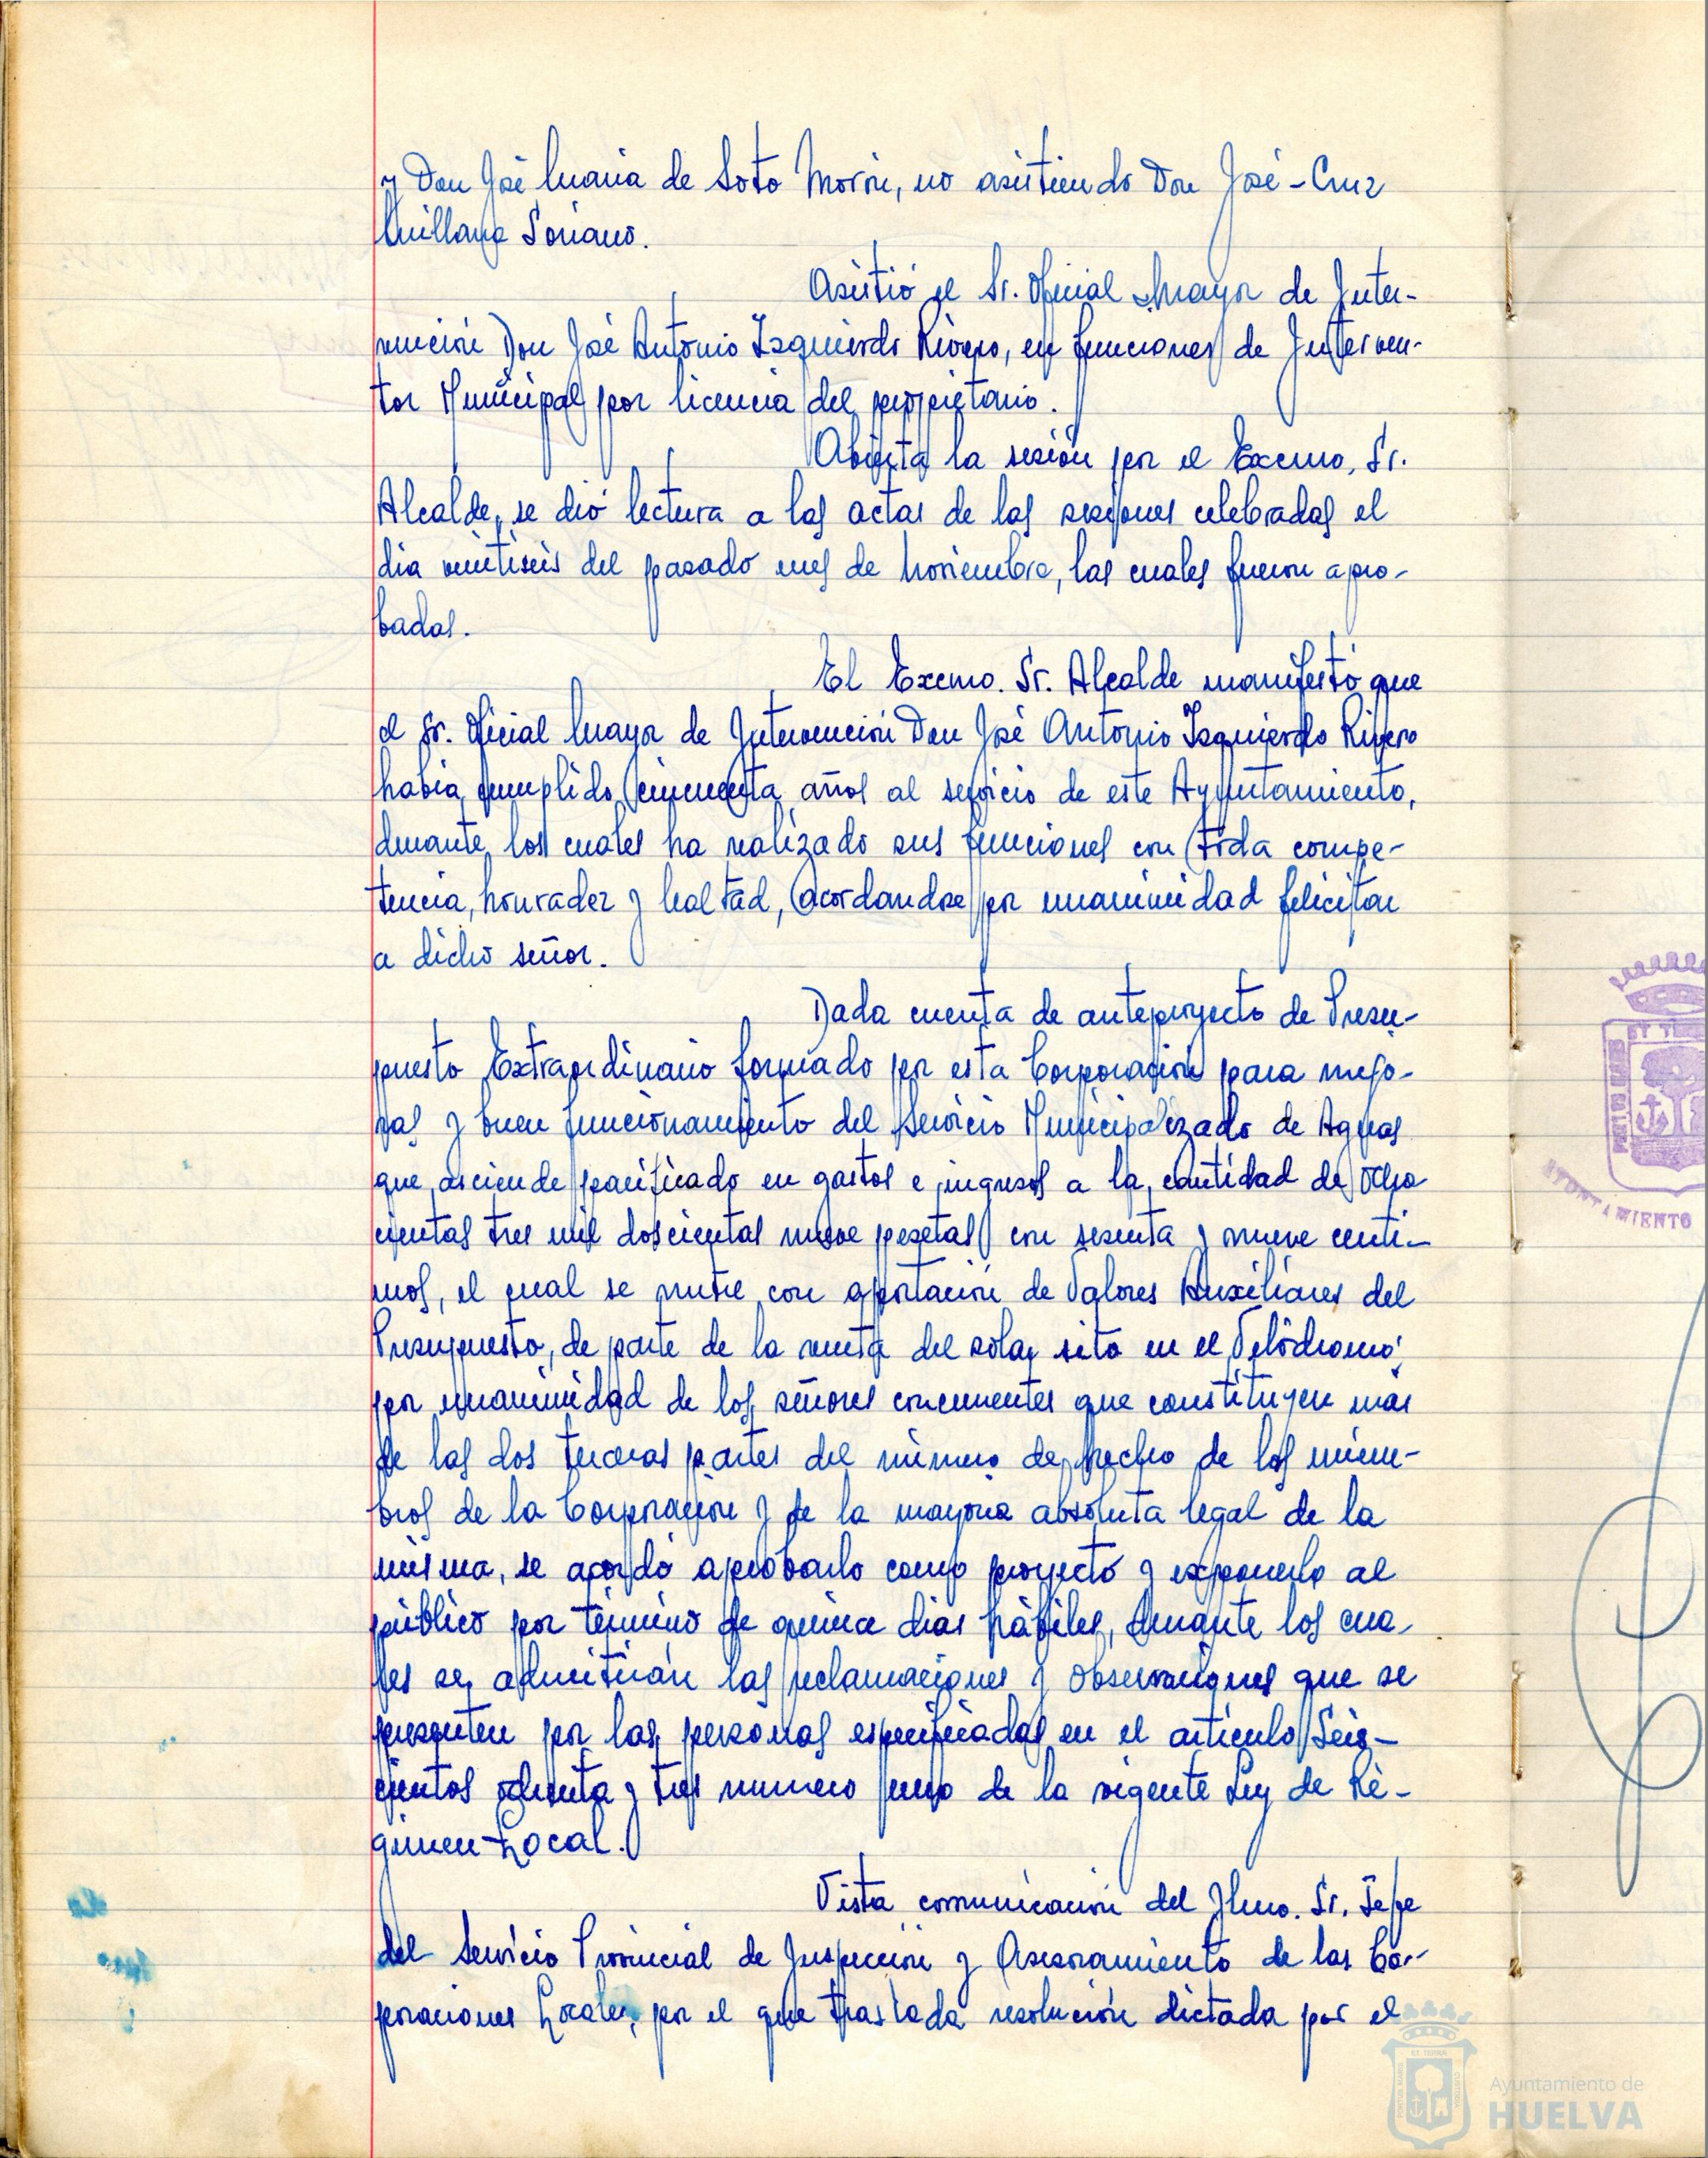 y Don José Maria de Soto Morón, no asistiendo Don José-Cruz
Quillane Soriano.
Asistió el Sr. Oficial Mayor de Inter-
vención Don José Antonio Izquierdo Rivero, en funciones de Interven-
tor Municipal por licencia del propietario.
Abierta la sesión por el Excmo, Sr.
Alcalde, se dió lectura a las actas de las sesiones celebradas el
dia veintiseis del pasado mes de Noviembre, las cuales fueron apro-
badas.
El Excmo. Sr. Alcalde manifestó que
el Sr. Oficial Mayor de Intervención Don José Antonio Izquierdo Rivero
habia cumplido cincuenta años al servicio de este Ayuntamiento,
durante los cuales ha realizado sus funciones con toda compe-
tencia, honradez y lealtad, acordandose por unanimidad felicitar
a dicho señor.
Dada cuenta de anteproyecto de Presu-
puesto Extraordinario formado por esta Corporación para mejo-
ras y buen funcionamiento del Servicio Municipalizado de Aguas
que asciende pacificado en gastos e ingresos a la cantidad de Ocho
cientas tres mil doscientas nueve pesetas con sesenta y nueve centi-
mos, el cual se nutre con aportación de Valores Auxiliares del
Presupuesto, de parte de la venta del solar sito en el Velódromo;
por unanimidad de los señores concurrentes que constituyen más
de las dos terceras partes del número de hecho de los miem-
bros de la Corporación y de la mayoria absoluta legal de la
misma, se acordó aprobarlo como proyecto y exponerlo al
público por término de quince dias hábiles, durante los cua-
les se admitirán las reclamaciones y observaciones que se
presenten por las personas especificadas en el articulo Seis-
cientos ochenta y tres numero uno de la vigente Ley de Ré-
gimen Local.
Vista comunicación del Ilmo. Sr. Jefe
del Servicio Provincial de Inspección y Asesoramiento de las Cor-
poraciones Locales, por el que traslada resolución dictada por el
AYUNTAMIENTO
Ayuntamiento de
HUELVA